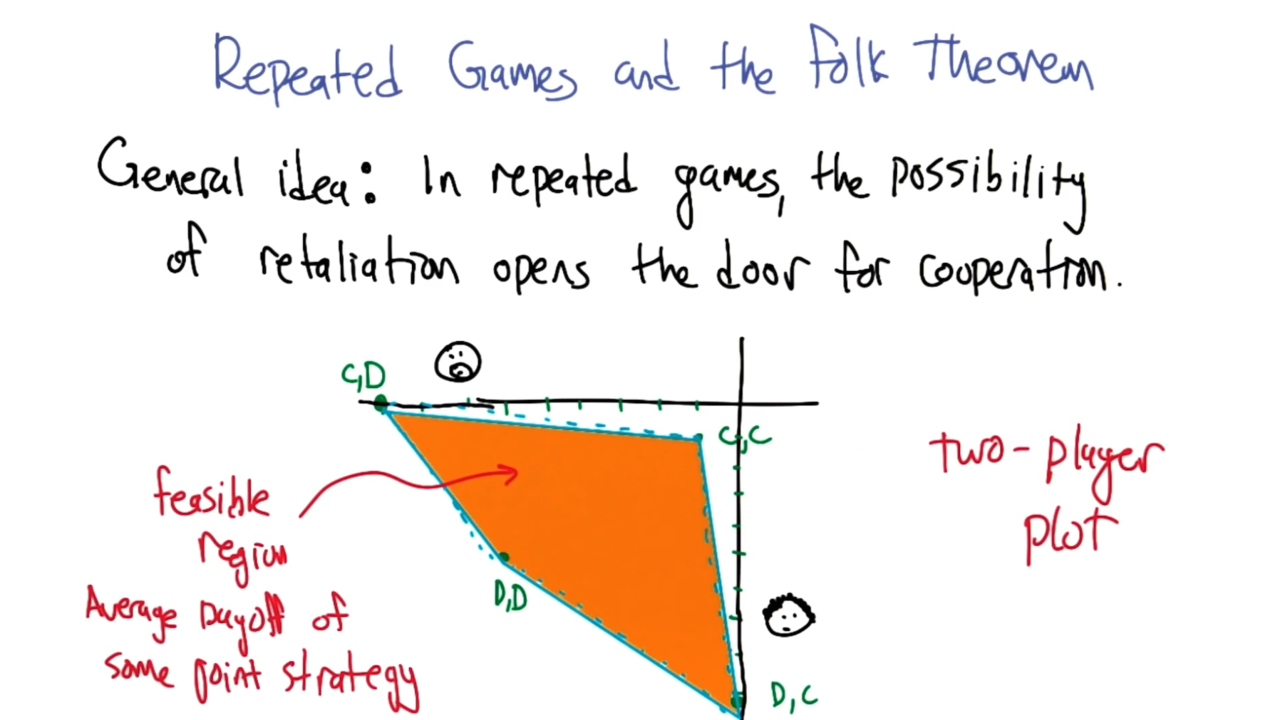 Repeated Games and the Folk Theorem
General idea: In repeated games, the possibility
of retaliation opens the door for cooperation.
C,D
C,C
two-player
plot
feasible
region
D,D
Average payoff of
some joint strategy
D,C